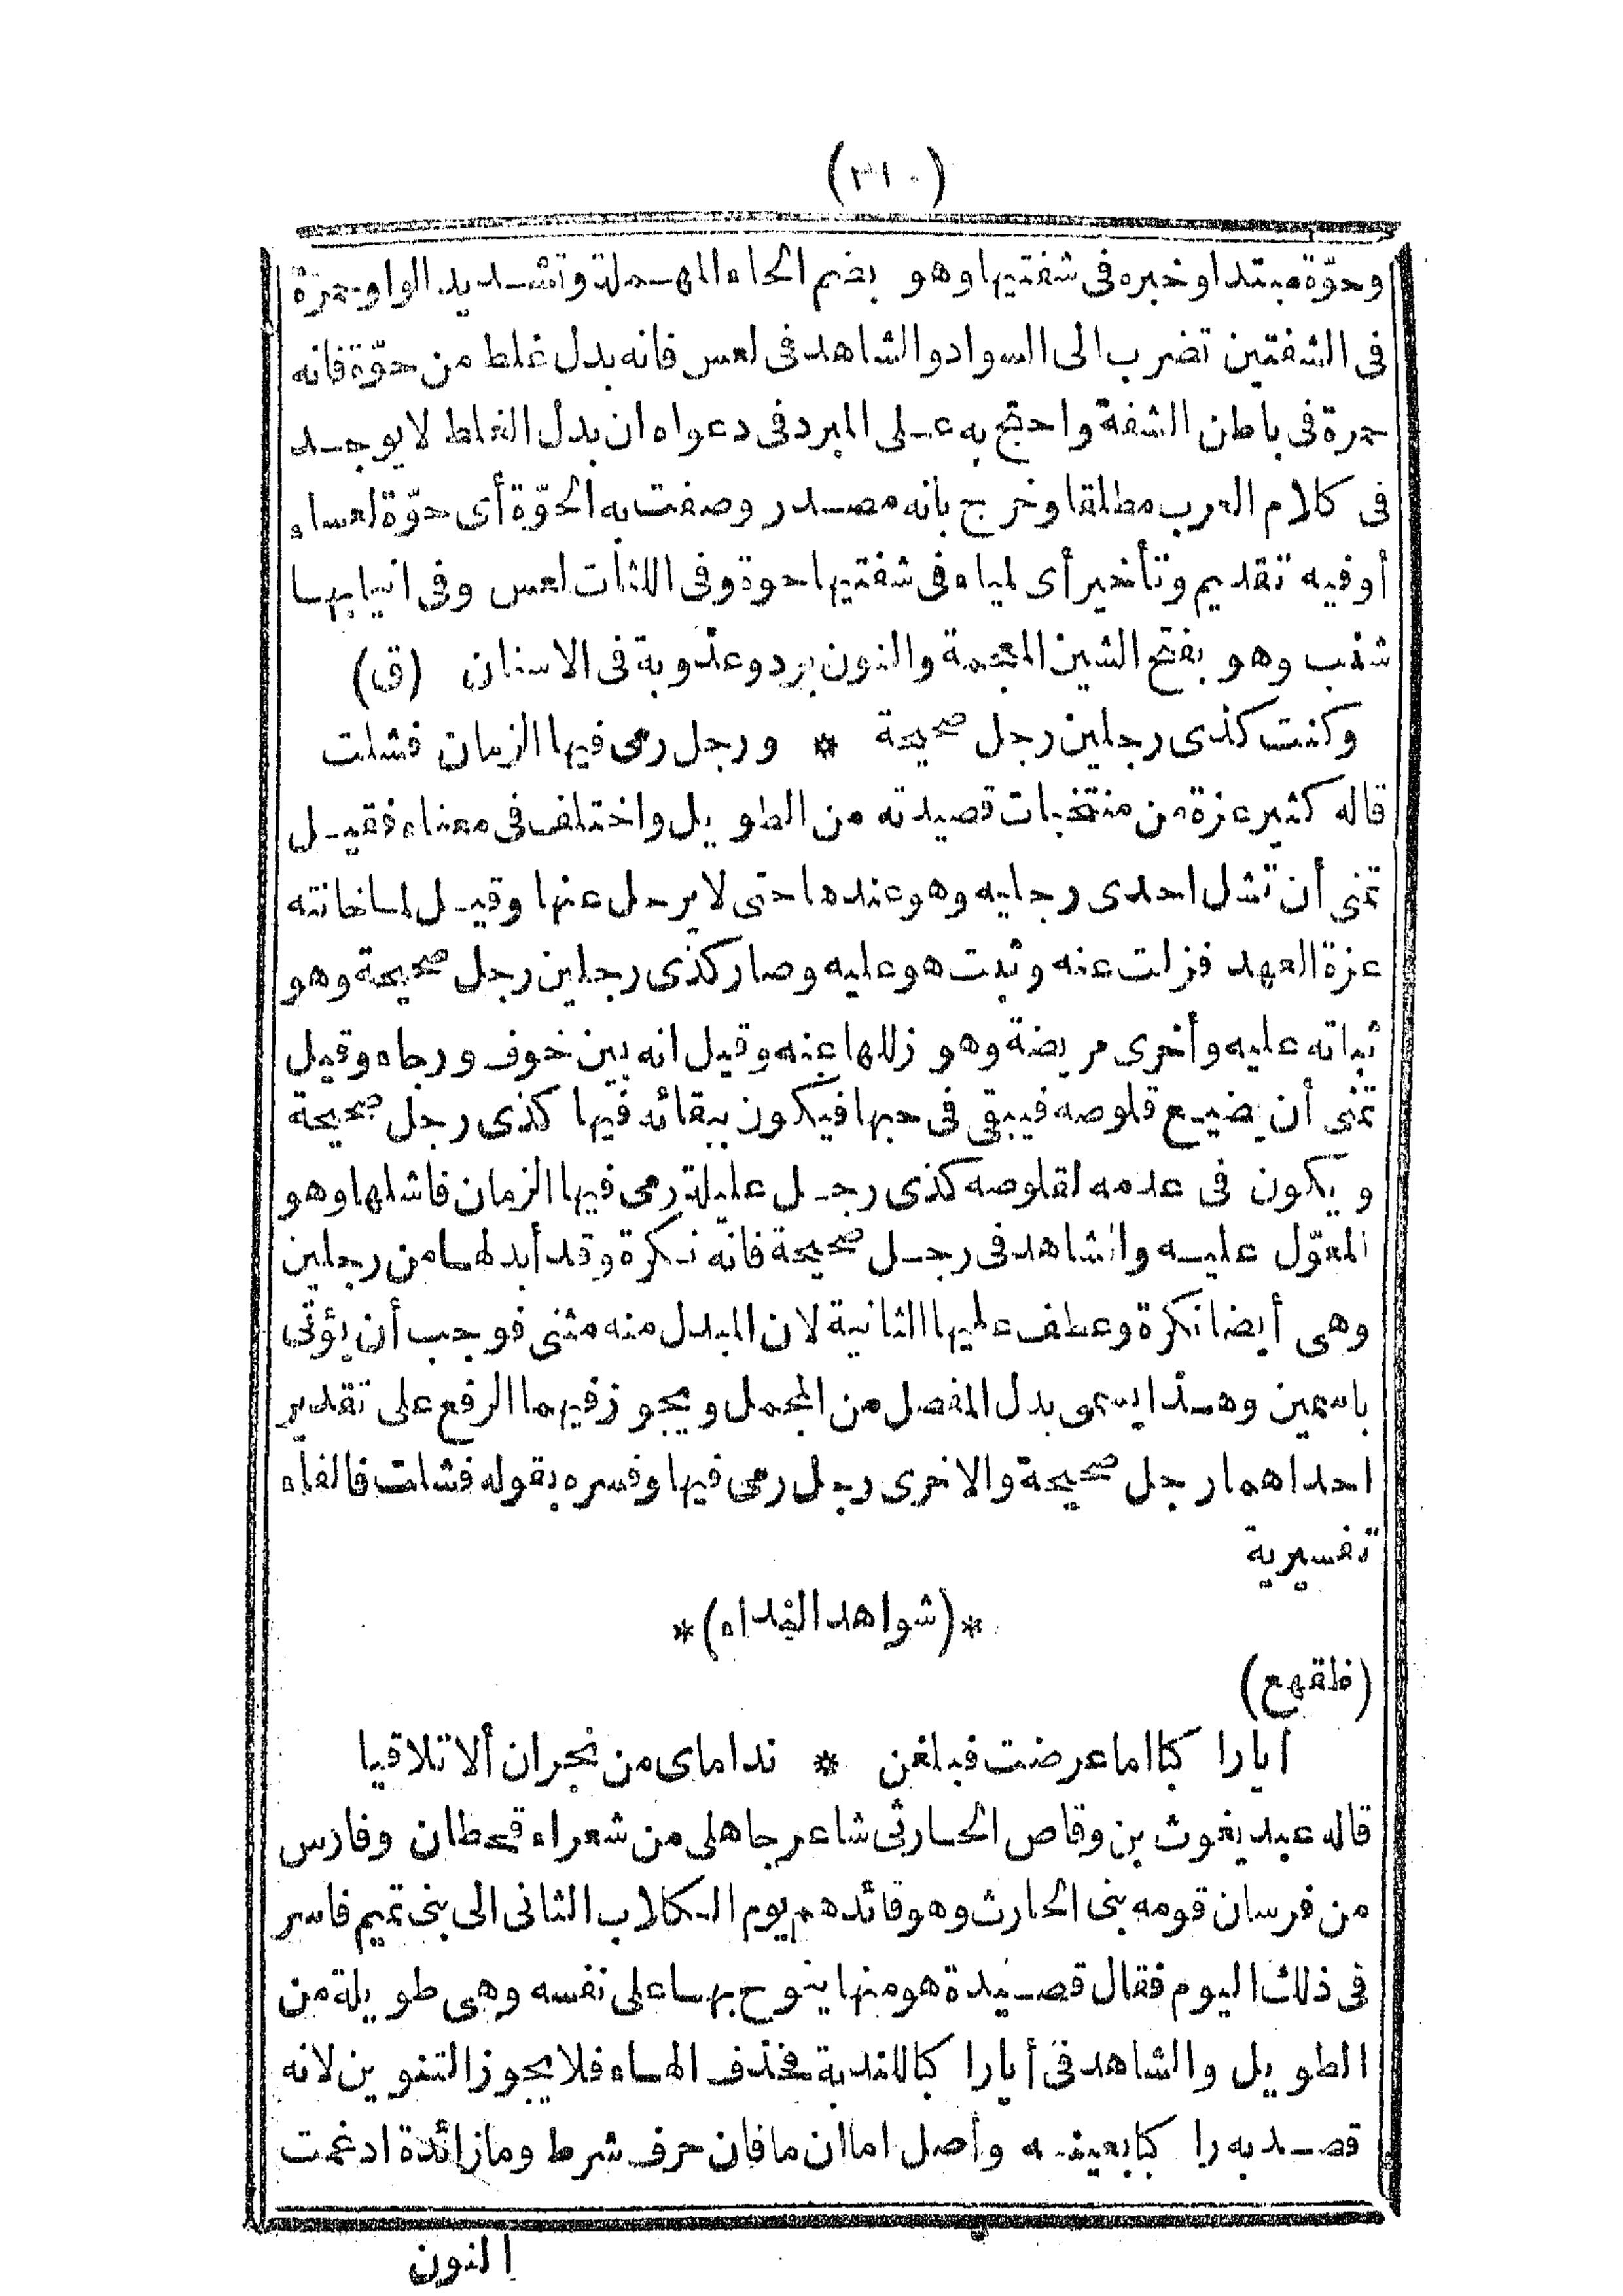 (٣١٠)
وحوّة مبتدا وخبره فى شفتيها وهو بضم الحاء المهملة وتشديد الواو حمرة
فى الشفتين تضرب الى السواد والشاهد فى لعس فانه بدل غلط من حوّة فانه
حمرة فى باطن الشفة واحتج به على المبرد فى دعواه ان بدل الغلط لا يوجد
فى كلام العرب مطلقا وخرج بانه مصدر وصفت به الحوّة أى حوّة لعساء
أوفيه تقديم وتأخير أى لمياء فى شفتيها حوة وفى اللثات لعس وفى انيابها
شنب وهو بفتح الشين المعجمة والنون برد وعذوبة فى الاسنان (ق)
وكنت كذى رجلين رجل صحيحة * ورجل رمى فيها الزمان فشلت
قاله كثير عزة من منتخبات قصيدته من الطويل واختلف فى معناه فقيل
تمنى أن تشل احدى رجليه وهو عندها حتى لا يرحل عنها وقيل لما خانته
عزة العهد فزلت عنه وثبت هو عليه وصار كذى رجلين رجل صحيحة وهو
ثباته عليه وأخرى مريضة وهو زللها عنه وقيل انه بين خوف ورجاء وقيل
تمنى أن يضيع قلوصه فيبقى فى حبها فيكون ببقائه فيها كذى رجل صحيحة
ويكون فى عدمه لقلوصه كذى رجل عليلة رمى فيها الزمان فاشلها وهو
المعوّل عليه والشاهد فى رجل صحيحة فانه نكرة وقد أبدلها من رجلين
وهى أيضا نكرة وعطف عليها الثانية لان المبدل منه مثنى فوجب أن يؤتى
باسمين وهذا يسمى بدل المفصل من المجمل ويجوز فيهما الرفع على تقدير
احداهما رجل صحيحة والاخرى رجل رمى فيها وفسره بقوله فشلت فالفاء
تفسيرية
*(شواهد النداء)*
(ظقهع)
أيا را كبا اما عرضت فبلغن * نداماى من نجران ألا تلاقيا
قاله عبد يغوث بن وقاص الحارثى شاعر جاهلى من شعراء قحطان وفارس
من فرسان قومه بنى الحارث وهو قائدهم يوم الكلاب الثانى الى بنى تميم فاسر
فى ذلك اليوم فقال قصيدة هو منها ينوح بها على نفسه وهى طويلة من
الطويل والشاهد فى أيا را كبا للندبة فحذف الهاء فلا يجوز التنوين لانه
قصد به را كبا بعينه وأصل اما ان ما فان حرف شرط وما زائدة ادغمت
النون